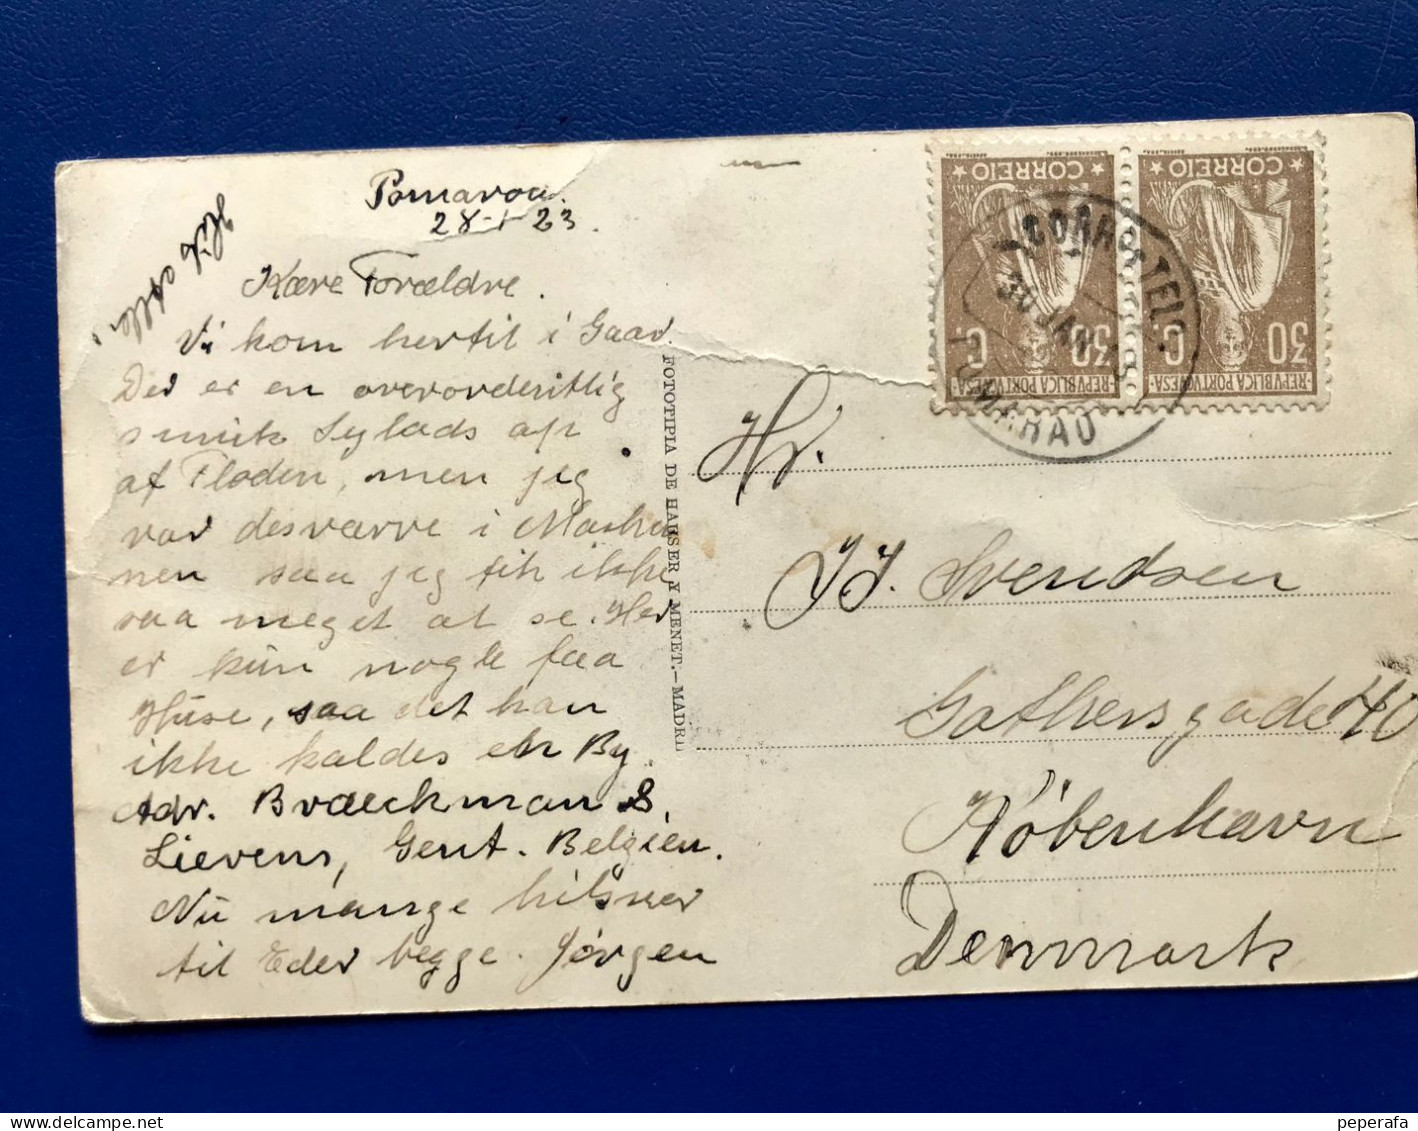 Pomarou.
28-1-23.
Kære Forældre.
Vi kom hertil i Gaar.
Det er en overordentlig
smuk Sejlads op
af Floden, men jeg
var desværre i Maskin
nen saa jeg fik ikke
saa meget at se. Her
er kun nogle faa
Huse, saa det kan
ikke kaldes en By.
Adr. Braeckman &
Lievens, Gent. Belgien.
Nu mange hilsner
til Eder begge. Jørgen
FOTOTIPIA DE HAUSER Y MENET.- MADRID
CORREIO
30 C.
REPVBLICA PORTVGVESA
CORREIO
30 C.
REPVBLICA PORTVGVESA
CORR OS TELG.
30 JAN
POMARAO
Hr.
J. J. Svendsen
Gothersgade 40
København
Denmark
peperafa